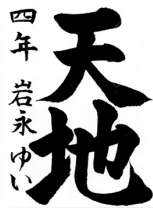 天地
四年 岩永ゆい